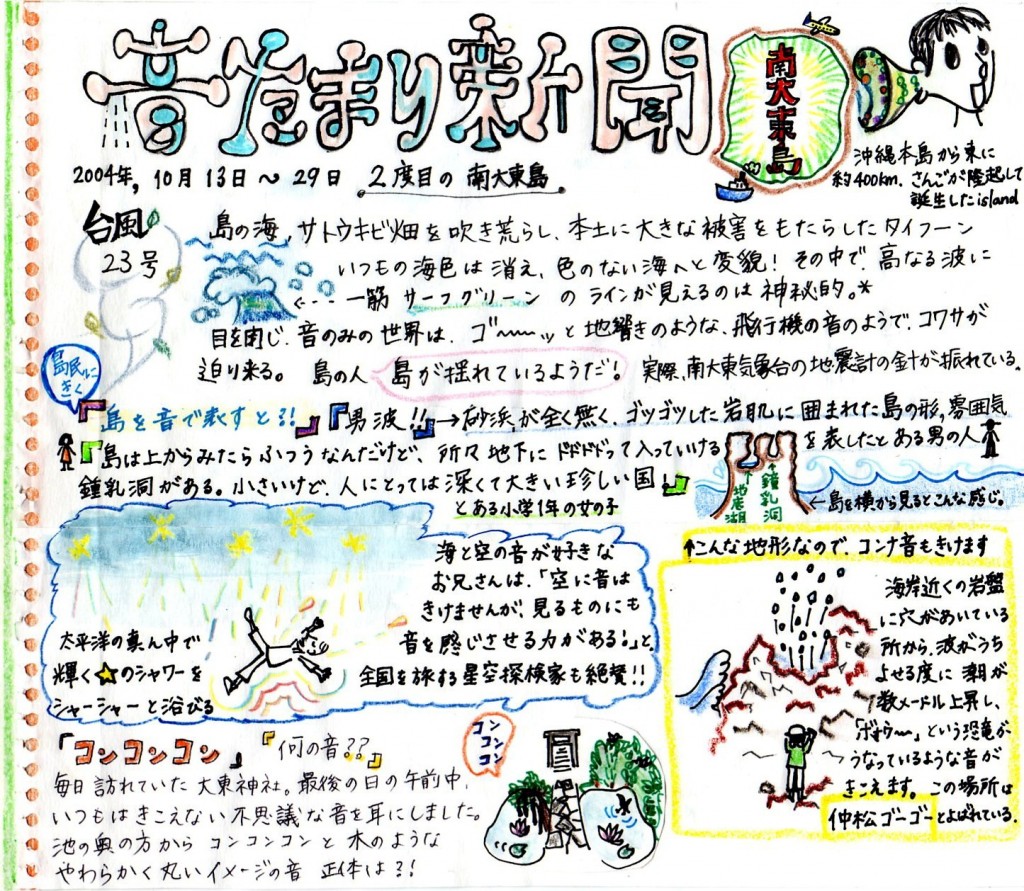 音だまり新聞
南大東島
2004年, 10月13日～29日 2度目の 南大東島
沖縄本島から東に
約400km. さんごが隆起して
誕生したisland
台風
23号
島の海, サトウキビ畑を吹き荒らし, 本土に大きな被害をもたらしたタイフーン
いつもの海色は消え, 色のない海へと変貌! その中で, 高なる波に
←---一筋 サーフグリーン の ラインが見えるのは神秘的。*
目を閉じ, 音のみの世界は, ゴ〜〜ッと地響きのような, 飛行機の音のようで, コワサが
迫り来る。 島の人 島が揺れているようだ! 実際, 南大東気象台の地震計の針が振れている.
島民に
きく
『島を音で表すと?!』『男波!!』→砂浜が全く無く, ゴツゴツした岩肌に囲まれた島の形, 雰囲気
を表したとある男の人
『島は上からみたらふつうなんだけど, 所々地下にドドドドって入っていける
鍾乳洞がある。小さいけど, 人にとっては深くて大きい珍しい国!』
とある小学1年の女の子
地底湖
鍾乳洞
←島を横から見るとこんな感じ。
海と空の音が好きな
お兄さんは, 「空に音は
きけませんが, 見るものにも
音を感じさせる力がある!」と,
全国を旅する星空探検家も絶賛!!
太平洋の真ん中で
輝く★のシャワーを
シャーシャーと浴びる
↑こんな地形なので, コンナ音もきけます
海岸近くの岩盤
に穴があいている
所から, 波がうち
よせる度に 潮が
数メートル上昇し,
「ボォウ〜〜」という恐竜が
うなっているような音が
きこえます。この場所は
仲松ゴーゴーとよばれている.
「コンコンコン」『何の音??』
コン
コン
コン
毎日訪れていた 大東神社。最後の日の午前中,
いつもはきこえない不思議な音を耳にしました。
池の奥の方から コンコンコンと 木のような
やわらかく丸いイメージの音 正体は?!